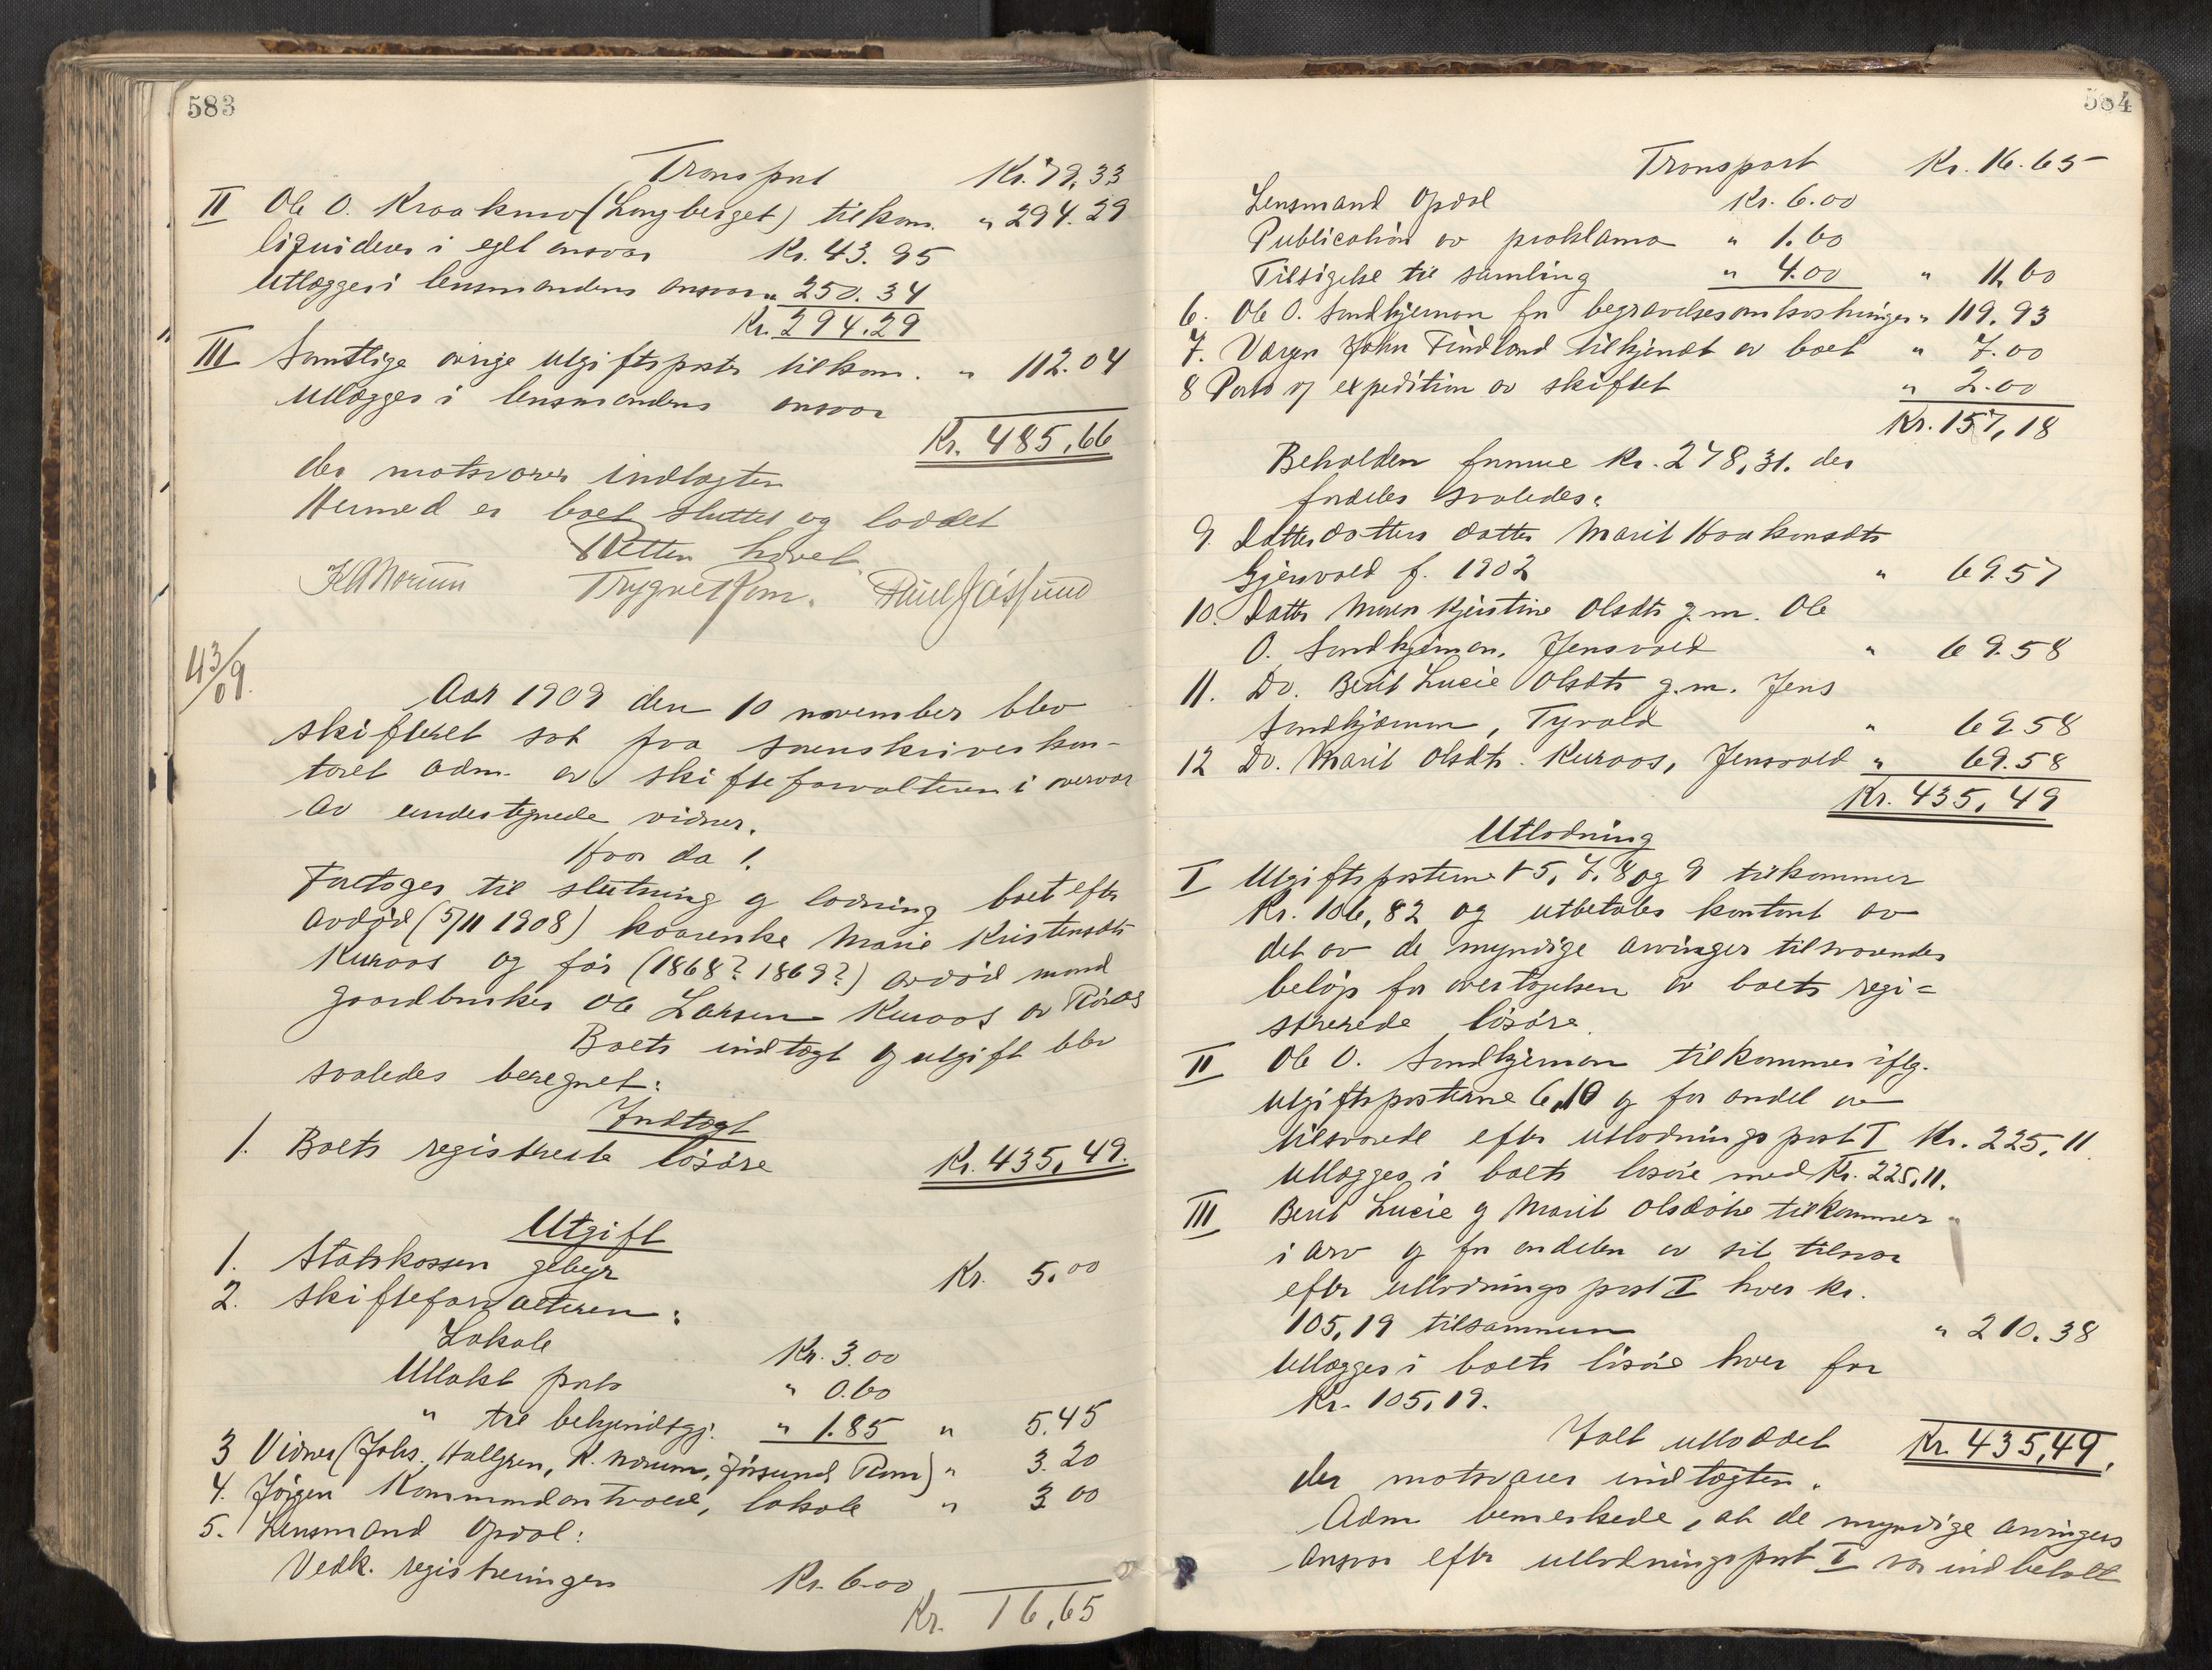 583
Transport Kr. 79,33
II Ole O. Kraakmo (Langberget) tilkom. " 294.29
liquideres i eget ansvar Kr. 43.95
Utlægges i lensmandens ansvar " 250.34
Kr. 294.29
III Samtlige øvrige utgiftsposter tilkom. " 112.04
utlægges i lensmandens ansvar
Kr. 485,66
der motsvarer indtægten
Hermed er boet sluttet og loddet
Retten hævet
K A Norum Trygve Ram. Paul Jøssund
43/09.
Aar 1909 den 10 november blev
skifteret sat paa sorenskriverkon-
toret adm. av skifteforvalteren i overvær
av undertegnede vidner.
Hvor da !.
Foretoges til slutning og lodning boet efter
avdød (5/11 1908) kaarenke Marie Kristensdtr
Kuraas og før (1868? 1869?) avdød mand
gaardbruker Ole Larsen Kuraas av Røros
Boets indtægt og utgift blev
saaledes beregnet:
Indtægt
1. Boets registrerte løsøre Kr. 435,49.
Utgift
1. Statskassen gebyr Kr. 5,00
2. Skifteforvalteren:
Lokale Kr. 3.00
Utlakt porto " 0.60
" til bekjendtgj. " 1.85 " 5.45
3 Vidner (Johs. Hallgren, K. Norum, Jøssund, Ram) " 3.20
4. Jørgen Kommandantvold, lokale " 3 00
5. Lensmand Opdal:
Vedk. registreringen Kr. 6.00
Kr. 16,65
584
Transport Kr. 16.65
Lensmand Opdal Kr. 6.00
Publication av proklama " 1.60
Tilsigelse til samling " 4.00 " 11,60
6. Ole O. Sandkjernan for begravelsesomkostninger " 119,93
7. Værgen John Findland tilkjendt av boet " 7.00
8 Porto og expedition av skiftet " 2.00
Kr. 157,18
Beholden formue Kr. 278,31. der
fordeles saaledes:
9. Datterdatters datter Marit Haakonsdtr
Gjersvold f. 1902 " 69.57
10. Datter Maren Kjerstine Olsdtr g.m. Ole
O. Sandkjernan, Jensvold " 69.58
11. Do. Berit Lucie Olsdtr g.m. Jens
Sandkjernan, Tyvold " 69.58
12 Do. Marit Olsdtr. Kuraas, Jensvold " 69.58
Kr. 435,49
Utlodning
I Utgiftsposterne 1-5, 7, 8 og 9 tilkommer
Kr. 106,82 og utbetales kontant av
det av de myndige arvinger tilsvarendes
beløp for overtagelsen av boets regi=
strerede løsøre.
II Ole O. Sandkjernan tilkommer iflg.
utgiftsposterne 6, 10 og for andel av
tilsvaret efter utlodningspost I Kr. 225,11.
utlægges i boets løsøre med Kr. 225,11.
III Berit Lucie og Marit Olsdøtre tilkommer
i arv og for andelen av sit tilsvar
efter utlodningspost I hver kr.
105,19 tilsammen " 210.38
utlægges i boets løsøre hver for
Kr. 105,19.
Ialt utloddet Kr. 435,49.
der motsvarer indtægten.
Adm bemerkede, at de myndige arvingers
ansvar efter utlodningspost I var indbetalt